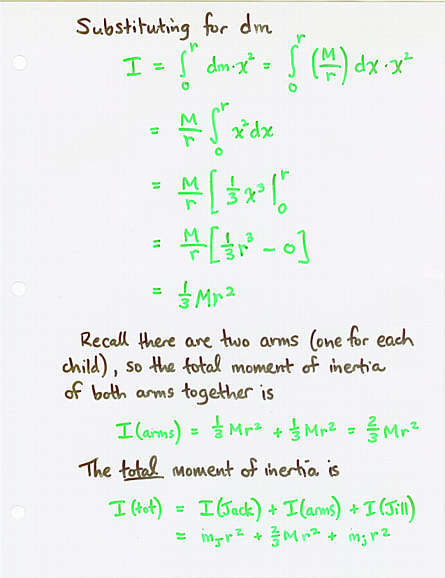 Substituting for dm
I = ∫₀ʳ dm·x² = ∫₀ʳ (M/r) dx·x²
= M/r ∫₀ʳ x²dx
= M/r [⅓x³|₀ʳ
= M/r [⅓r³ – 0]
= ⅓Mr²
Recall there are two arms (one for each
child), so the total moment of inertia
of both arms together is
I(arms) = ⅓Mr² + ⅓Mr² = ⅔Mr²
The total moment of inertia is
I(tot) = I(Jack) + I(arms) + I(Jill)
= mⱼr² + ⅔Mr² + mⱼr²